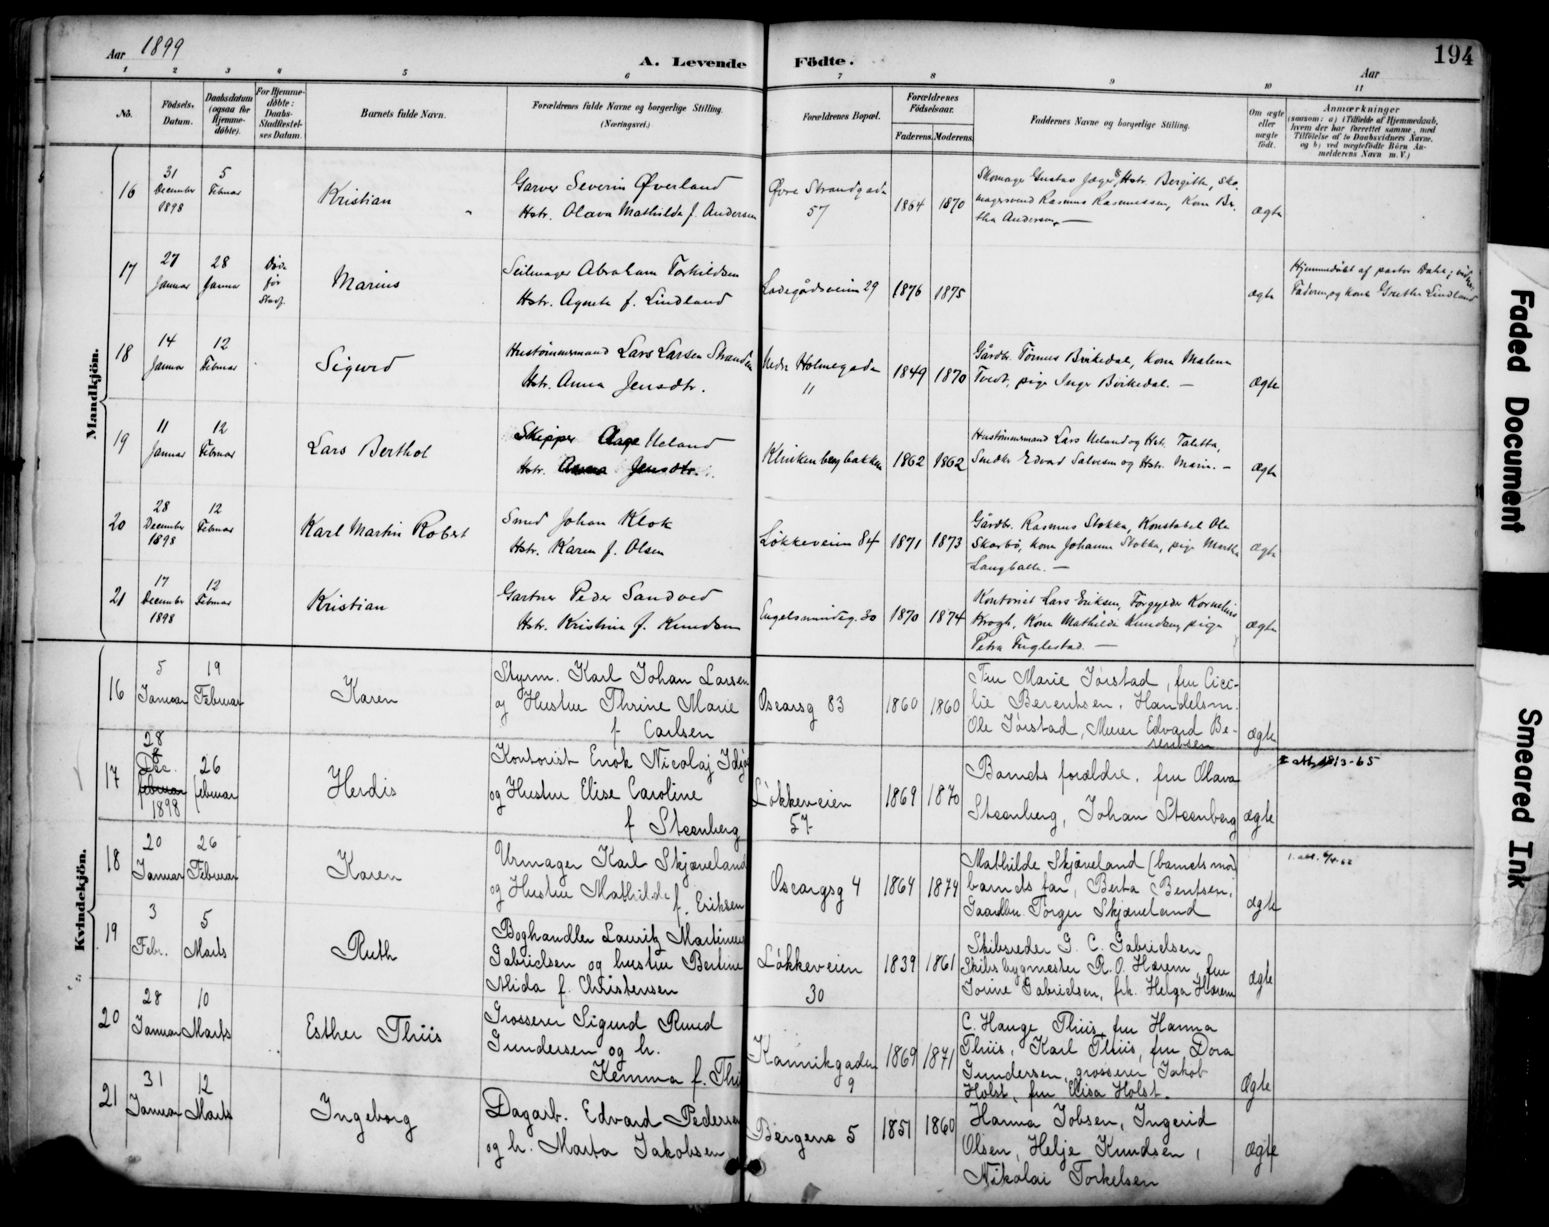 Aar 1899
A. Levende Födte.
Aar
194
1 2 3 4 5 6 7 8 9 10 11
No.
Födsels-Datum.
Daabsdatum (ogsaa for Hjemmedöbte).
For Hjemmedöbte: Daabs-Stadfæstelses Datum.
Barnets fulde Navn.
Forældrenes fulde Navne og borgerlige Stilling. (Næringsvei.)
Forældrenes Bopæl.
Forældrenes Födselsaar.
Faderens. Moderens.
Faddernes Navne og borgerlige Stilling.
Om ægte eller uægte födt.
Anmærkninger
Mandkjön.
16 31 December 1898 5 Februar Kristian
Garver Severin Øverland
Hstr. Olava Mathilda f. Andersen
Øvre Strandgade 57 1864 1870
Skomager Gustav Jæger & Hstr. Bergitta, Sko-
magersvend Rasmus Rasmussen, Kone Be-
tha Andersen. —
ægte
17 27 Januar 28 Januar Død før Stadf. Marius
Seilmager Abraham Torkildsen
Hstr. Agneta f. Lindland
Ladegårdsveien 29 1876 1875
ægte
Hjemmedöbt af pastor Dahl;
Faderen og kone Grethe Lindland
18 14 Januar 12 Februar Sigurd
Hustömmermand Lars Larsen Strand
Hstr. Anna Jensdtr.
Nedre Holmegade 11 1849 1870
Gårdbr. Tönnes Birkedal, Kone Malena
Tvedt, pige Inger Birkedal. —
ægte
19 11 Januar 12 Februar Lars Berthol
Skipper Aage Ueland
Hstr. Anna Jensdtr.
Klinkenbergbakken 1862 1862
Hustömmermand Lars Ueland og Hst. Taletta,
Snedkr Edvard Salvesen og Hstr. Marie. —
ægte
20 28 December 1898 12 Februar Karl Martin Robert
Smed Johan Klok
Hstr. Karen f. Olsen
Løkkeveien 84 1871 1873
Gårdbr. Rasmus Stokka, Konstabel Ole
Skarbö, kone Johanne Stokka, pige Martha
Langballe. —
ægte
21 17 December 1898 12 Februar Kristian
Gartner Peder Sandved
Hstr. Kristine f. Knudsen
Engelsmindeg. 30 1870 1874
Kontorist Lars Eriksen, Forgylder Kornelius
Krogh, Kone Mathilde Knudsen, pige
Petra Fuglestad. —
ægte
Kvindekjön.
16 5 Januar 19 Februar Karen
Styrm. Karl Johan Larsen
og Hustru Thrine Marie
f Carlsen
Oscarsg 83 1860 1860
Fru Marie Jørstad, fru Cice-
lie Berentsen, Handelsm.
Ole Jørstad, Murer Edvard Be-
rentsen
ægte
17 28 Dec. februar 1898 26 februar Herdis
Kontorist Enok Nicolaj
og Hustru Elise Caroline
f Steenberg
Løkkeveien 57 1869 1870
Barnets forældre, fru Olava
Steenberg, Johan Steenberg
ægte
18 20 Januar 26 Februar Karen
Urmager Karl Skjæveland
og Hustru Mathilde
f. Eriksen
Oscargsg 4 1864 1874
Mathilde Skjæveland (barnets mor)
barnets far, Berta Bentsen,
Gaardbr. Torger Skjæveland
ægte
19 3 Febr. 5 Marts Ruth
Boghandler Lauritz Martinius
Gabrielsen og hustru Bertine
Alida f. Christensen
Løkkeveien 30 1839 1861
Skibsreder G. C. Gabrielsen
Skibsbygmester R. O. Harem, fru
Jorine Gabrielsen, frk. Helga Harem
ægte
20 28 Januar 10 Marts Esther Thiis
Grosserer Sigurd Rued
Gundersen og h.
Kemma f. Thi
Kannikgaden 9 1869 1871
C. Hauge Thiis, fru Hanna
Thiis, Karl Thiis, fru Dora
Gundersen, grosserer Jakob
Holst, fru Elisa Holst.
Ægte
21 31 Januar 12 Marts Ingeborg
Dagarb. Edvard Pedersen
og h. Marta Jakobsen
Bergene 5 1851 1860
Hanna Jobsen, Ingerid
Olsen, Helje Knudsen,
Nikolai Torkelsen
ægte
Faded Document
Smeared Ink